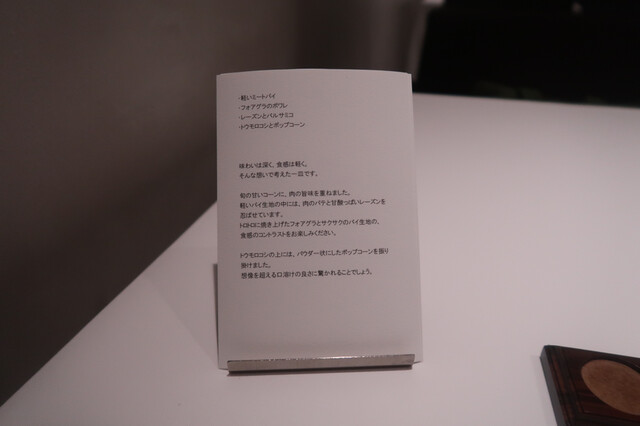 ・軽いミートパイ
・フォアグラのポワレ
・レーズンとバルサミコ
・トウモロコシとポップコーン
味わいは深く、食感は軽く。
そんな想いで考えた一皿です。
旬の甘いコーンに、肉の旨味を重ねました。
軽いパイ生地の中には、肉のパテと甘酸っぱいレーズンを
忍ばせています。
トロトロに焼き上げたフォアグラとサクサクのパイ生地の、
食感のコントラストをお楽しみください。
トウモロコシの上には、パウダー状にしたポップコーンを振り
掛けました。
想像を超える口溶けの良さに驚かれることでしょう。